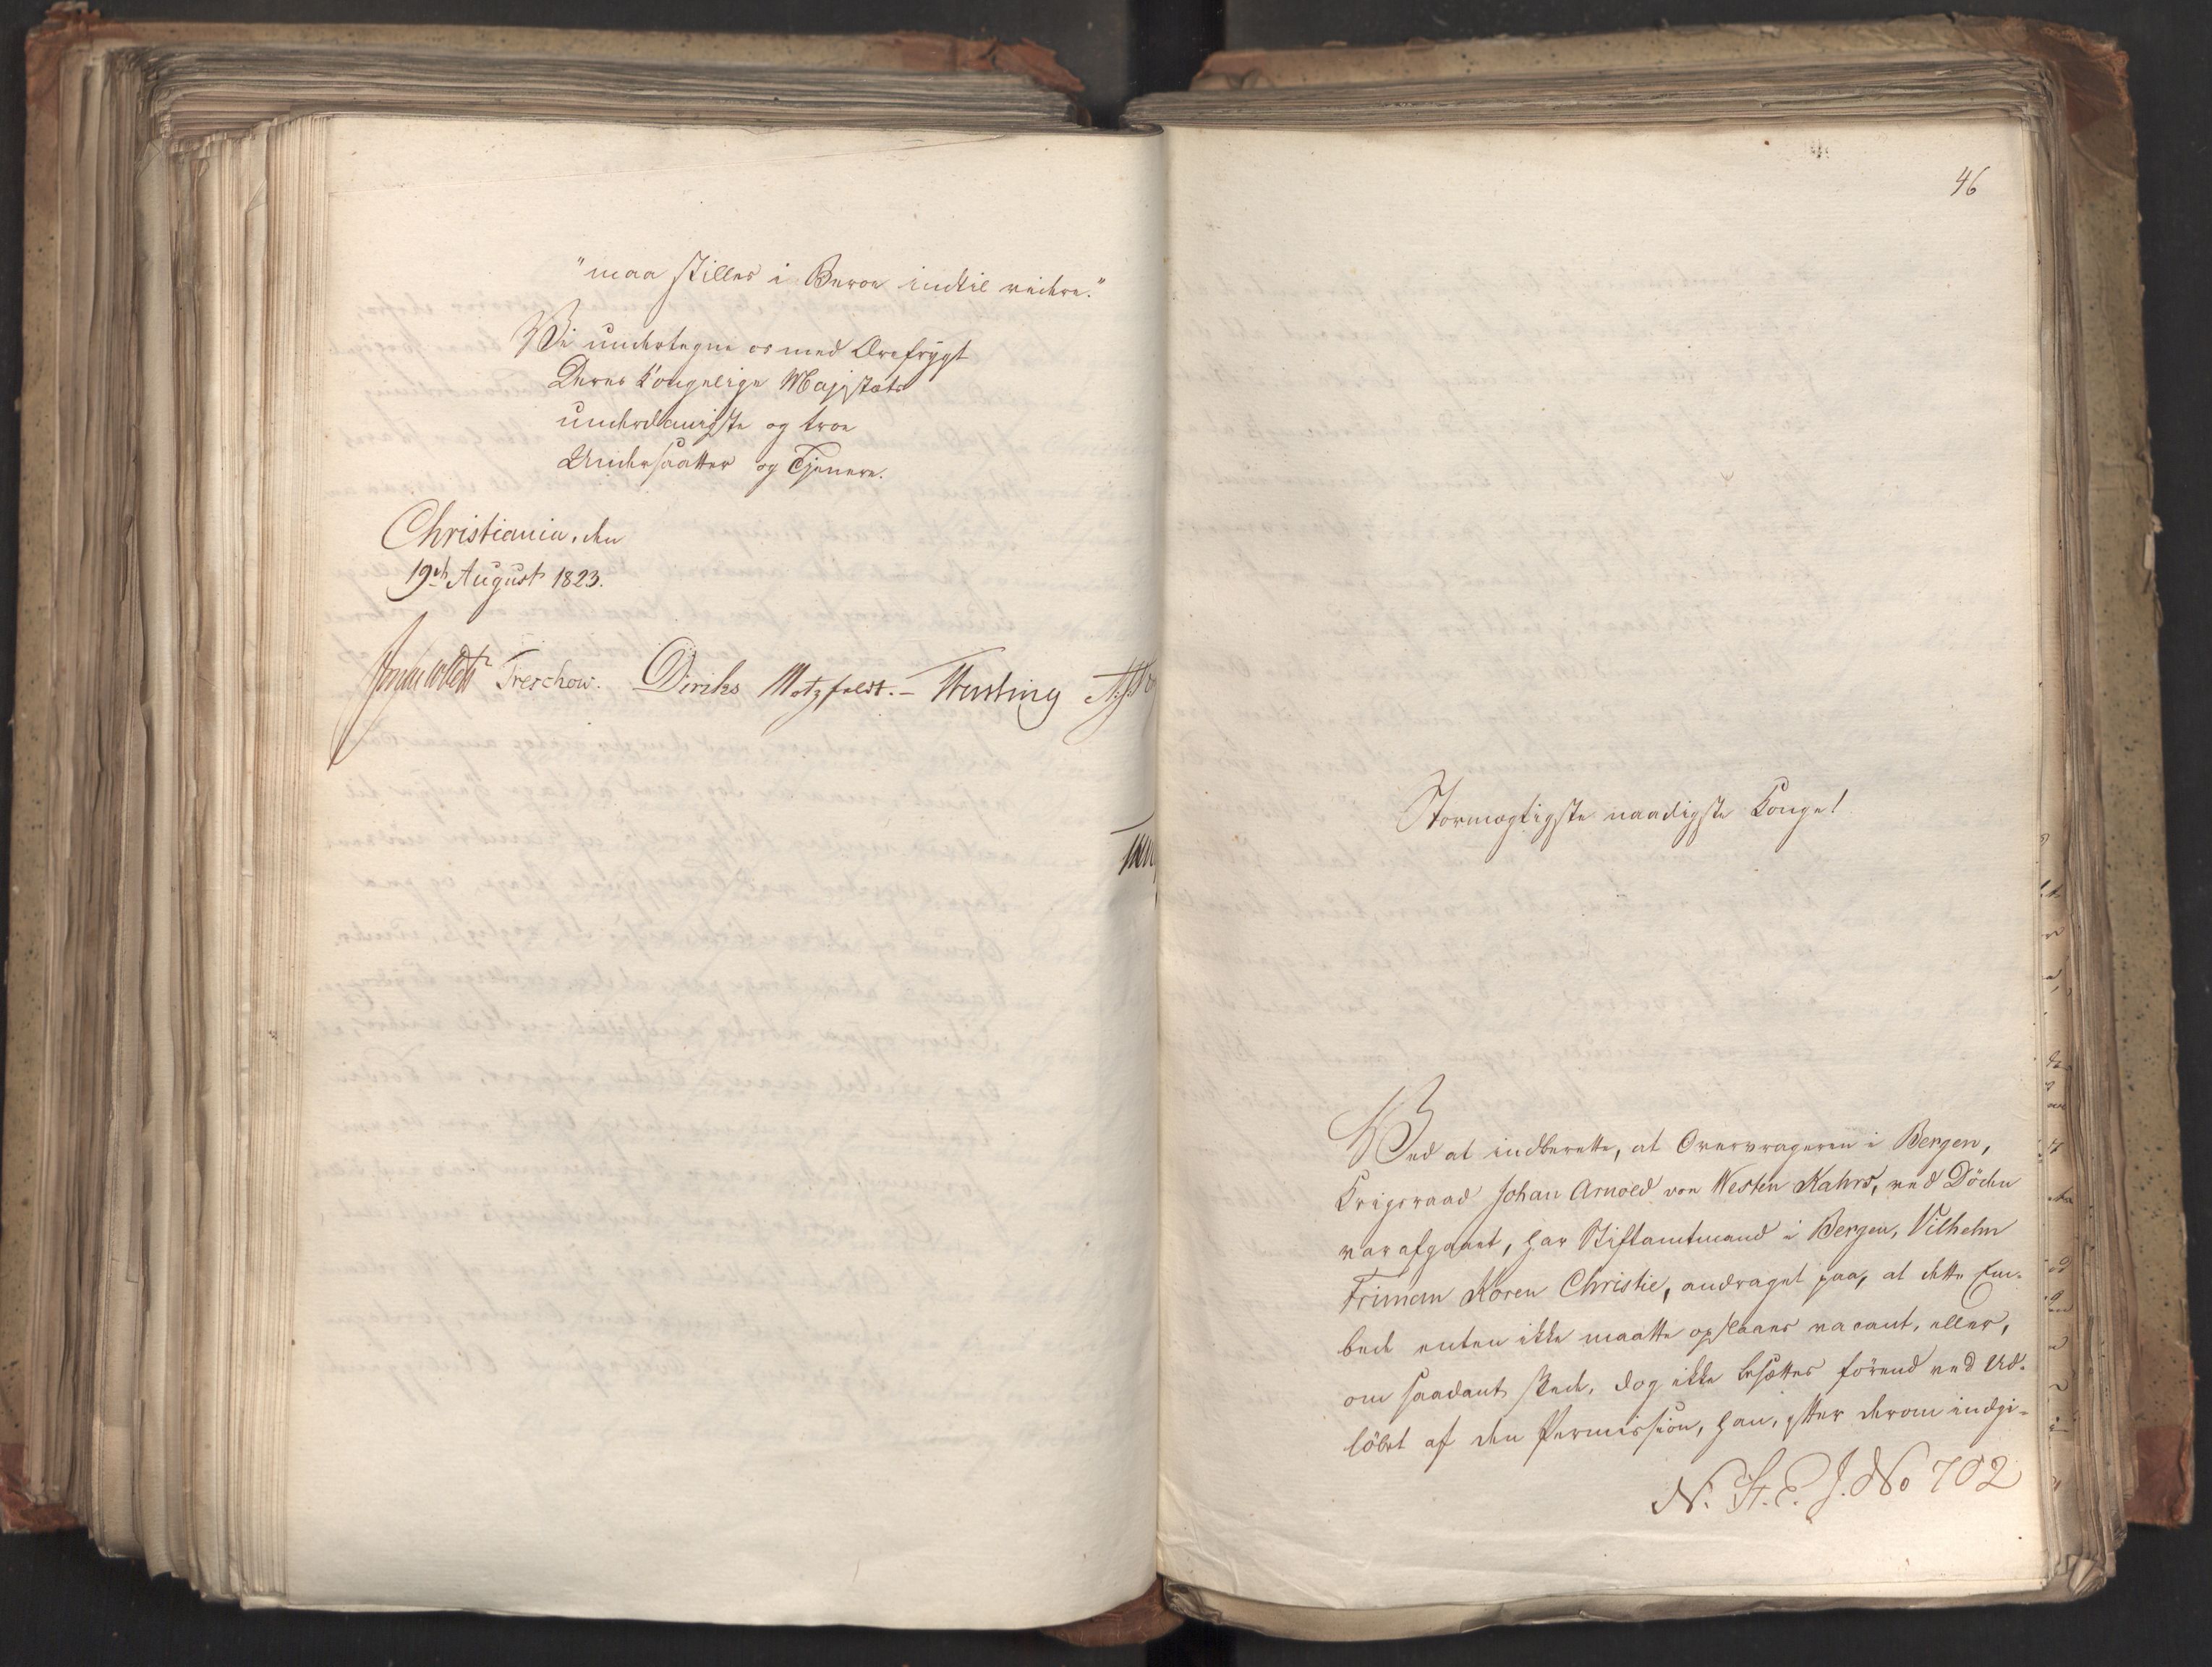 "maa stilles i Beroe indtil videre."
Vi undertegne os med Ærefrygt
Deres Kongelige Majestæts
underdanigste og troe
Undersaatter og Tjenere.
Christiania, den
19de August 1823.
Treschow. Diriks Motzfeldt.-
46
Stormægtigste naadigste Konge!
Ved at indberette, at Overvrageren i Bergen,
Krigsraad Johan Arnold von Westen Kahrs, ved Döden
var afgaaet, har Stiftamtmand i Bergen, Vilhelm
Frimann Koren Christie, andraget paa, at dette Em-
bede enten ikke maatte opslaaes vacant, eller,
om saadant skede, dog ikke besættes förend ved Ud-
löbet af den Permission, han, efter derom indgi-
N. St. E. J. No 702